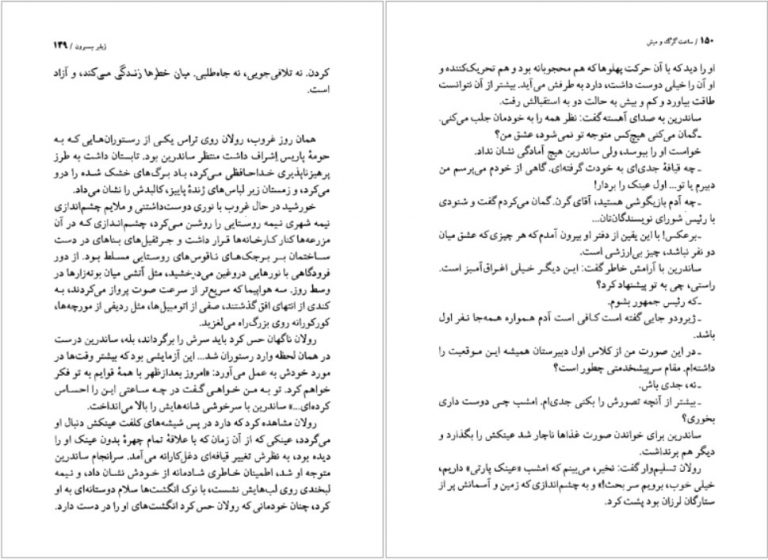 ژیلبر سبرون / ۱۴۹
کردن. نه تلافی‌جویی، نه جاه‌طلبی. میان خطرها زندگی می‌کند، و آزاد
است.
همان روز غروب، رولان روی تراس یکی از رستوران‌هایی که به
حومهٔ پاریس اِشراف داشت منتظر ساندرین بود. تابستان داشت به طرز
پرهیزناپذیری خداحافظی می‌کرد، باد برگ‌های خشک شده را درو
می‌کرد، و زمستان زیر لباس‌های ژندهٔ پاییز، کالبدش را نشان می‌داد.
خورشید در حال غروب با نوری دوست‌داشتنی و ملایم چشم‌اندازی
نیمه شهری نیمه روستایی را روشن می‌کرد، چشم‌اندازی که در آن
مزرعه‌ها کنار کارخانه‌ها قرار داشت و جرثقیل‌های بناهای در دست
ساختمان بر برجک‌های ناقوس‌های روستایی مسلط بود. از دور
فرودگاهی با نورهایی دروغین می‌درخشید، مثل آتشی میان بوته‌زارها در
وسط روز. سه هواپیما که سریع‌تر از سرعت صوت پرواز می‌کردند، به
کندی از انتهای افق گذشتند، صفی از اتومبیل‌ها، مثل ردیفی از مورچه‌ها،
کورکورانه روی بزرگ‌راه می‌لغزید.
رولان ناگهان حس کرد باید سرش را برگرداند، بله، ساندرین درست
در همان لحظه وارد رستوران شد... این آزمایشی بود که بیشتر وقت‌ها در
مورد خودش به عمل می‌آورد: «امروز بعدازظهر با همهٔ قوایم به تو فکر
خواهم کرد. تو به من خواهی گفت در چه ساعتی این را احساس
کرده‌ای...» ساندرین با سرخوشی شانه‌هایش را بالا می‌انداخت.
رولان مشاهده کرد که دارد در پس شیشه‌های کلفت عینکش دنبال او
می‌گردد، عینکی که از آن زمان که با علاقهٔ تمام چهرهٔ بدون عینک او را
دیده بود، به نظرش تغییر قیافه‌ای دغل‌کارانه می‌آمد. سرانجام ساندرین
متوجه او شد، اطمینان خاطری شادمانه از خودش نشان داد، و نیمه
لبخندی روی لب‌هایش نشست، با نوک انگشت‌ها سلام دوستانه‌ای به او
کرد، چنان خودمانی که رولان حس کرد انگشت‌های او را در دست دارد.
۱۵۰ / ساعت گرگ و میش
او را دید که با آن حرکت پهلوها که هم محجوبانه بود و هم تحریک‌کننده و
او آن را خیلی دوست داشت، دارد به طرفش می‌آید. بیشتر از آن نتوانست
طاقت بیاورد و کم و بیش به حالت دو به استقبالش رفت.
ساندرین به صدای آهسته گفت: نظر همه را به خودمان جلب می‌کنی.
ـ گمان می‌کنی هیچ‌کس متوجه تو نمی‌شود، عشق من؟
خواست او را ببوسد، ولی ساندرین هیچ آمادگی نشان نداد.
ـ چه قیافهٔ جدی‌ای به خودت گرفته‌ای. گاهی از خودم می‌پرسم من
دبیرم یا تو... اول عینک را بردار!
ـ چه آدم بازیگوشی هستید، آقای گرن. گمان می‌کردم گفت و شنودی
با رئیس شورای نویسندگان‌تان...
ـ برعکس! با این یقین از دفتر او بیرون آمدم که هر چیزی که عشق میان
دو نفر نباشد، چیز بی‌ارزشی است.
ساندرین با آرامش خاطر گفت: این دیگر خیلی اغراق‌آمیز است.
راستی، چی به تو پیشنهاد کرد؟
ـ که رئیس جمهور بشوم.
ـ ژیرودو جایی گفته است کافی است آدم همواره همه‌جا نفر اول
باشد.
ـ در این صورت من از کلاس اول دبیرستان همیشه این موقعیت را
داشته‌ام. مقام سرپیشخدمتی چطور است؟
ـ نه، جدی باش.
ـ بیشتر از آنچه تصورش را بکنی جدی‌ام. امشب چی دوست داری
بخوری؟
ساندرین برای خواندن صورت غذاها ناچار شد عینکش را بگذارد و
دیگر هم برنداشت.
رولان تسلیم‌وار گفت: نخیر، می‌بینم که امشب «عینک پارتی» داریم،
خیلی خوب، برویم سر بحث!» و به چشم‌اندازی که زمین و آسمانش پر از
ستارگان لرزان بود پشت کرد.